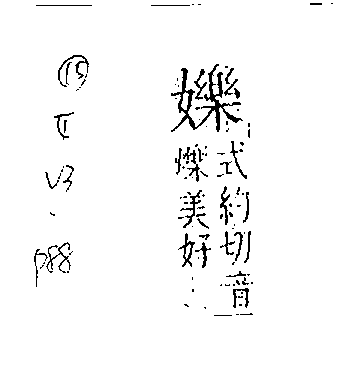 嬫
式約切音
爍美好
⑮
II
V3.
p88